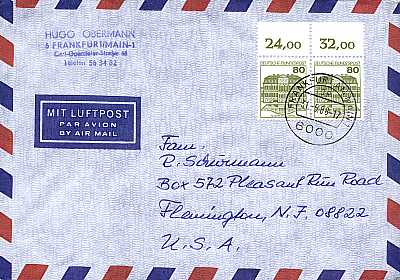 HUGO OBERMANN
6 FRANKFURT/MAIN-1
Carl-Goerdeler-Straße
Telefon 56 34 82
24,00 32,00
DEUTSCHE BUNDESPOST 80
DEUTSCHE BUNDESPOST 80
FRANKFURT AM MAIN
6000
MIT LUFTPOST
PAR AVION
BY AIR MAIL
Fam.
R. Schürmann
Box 572 Pleasant Run Road
Flemington, N.J. 08822
U.S.A.